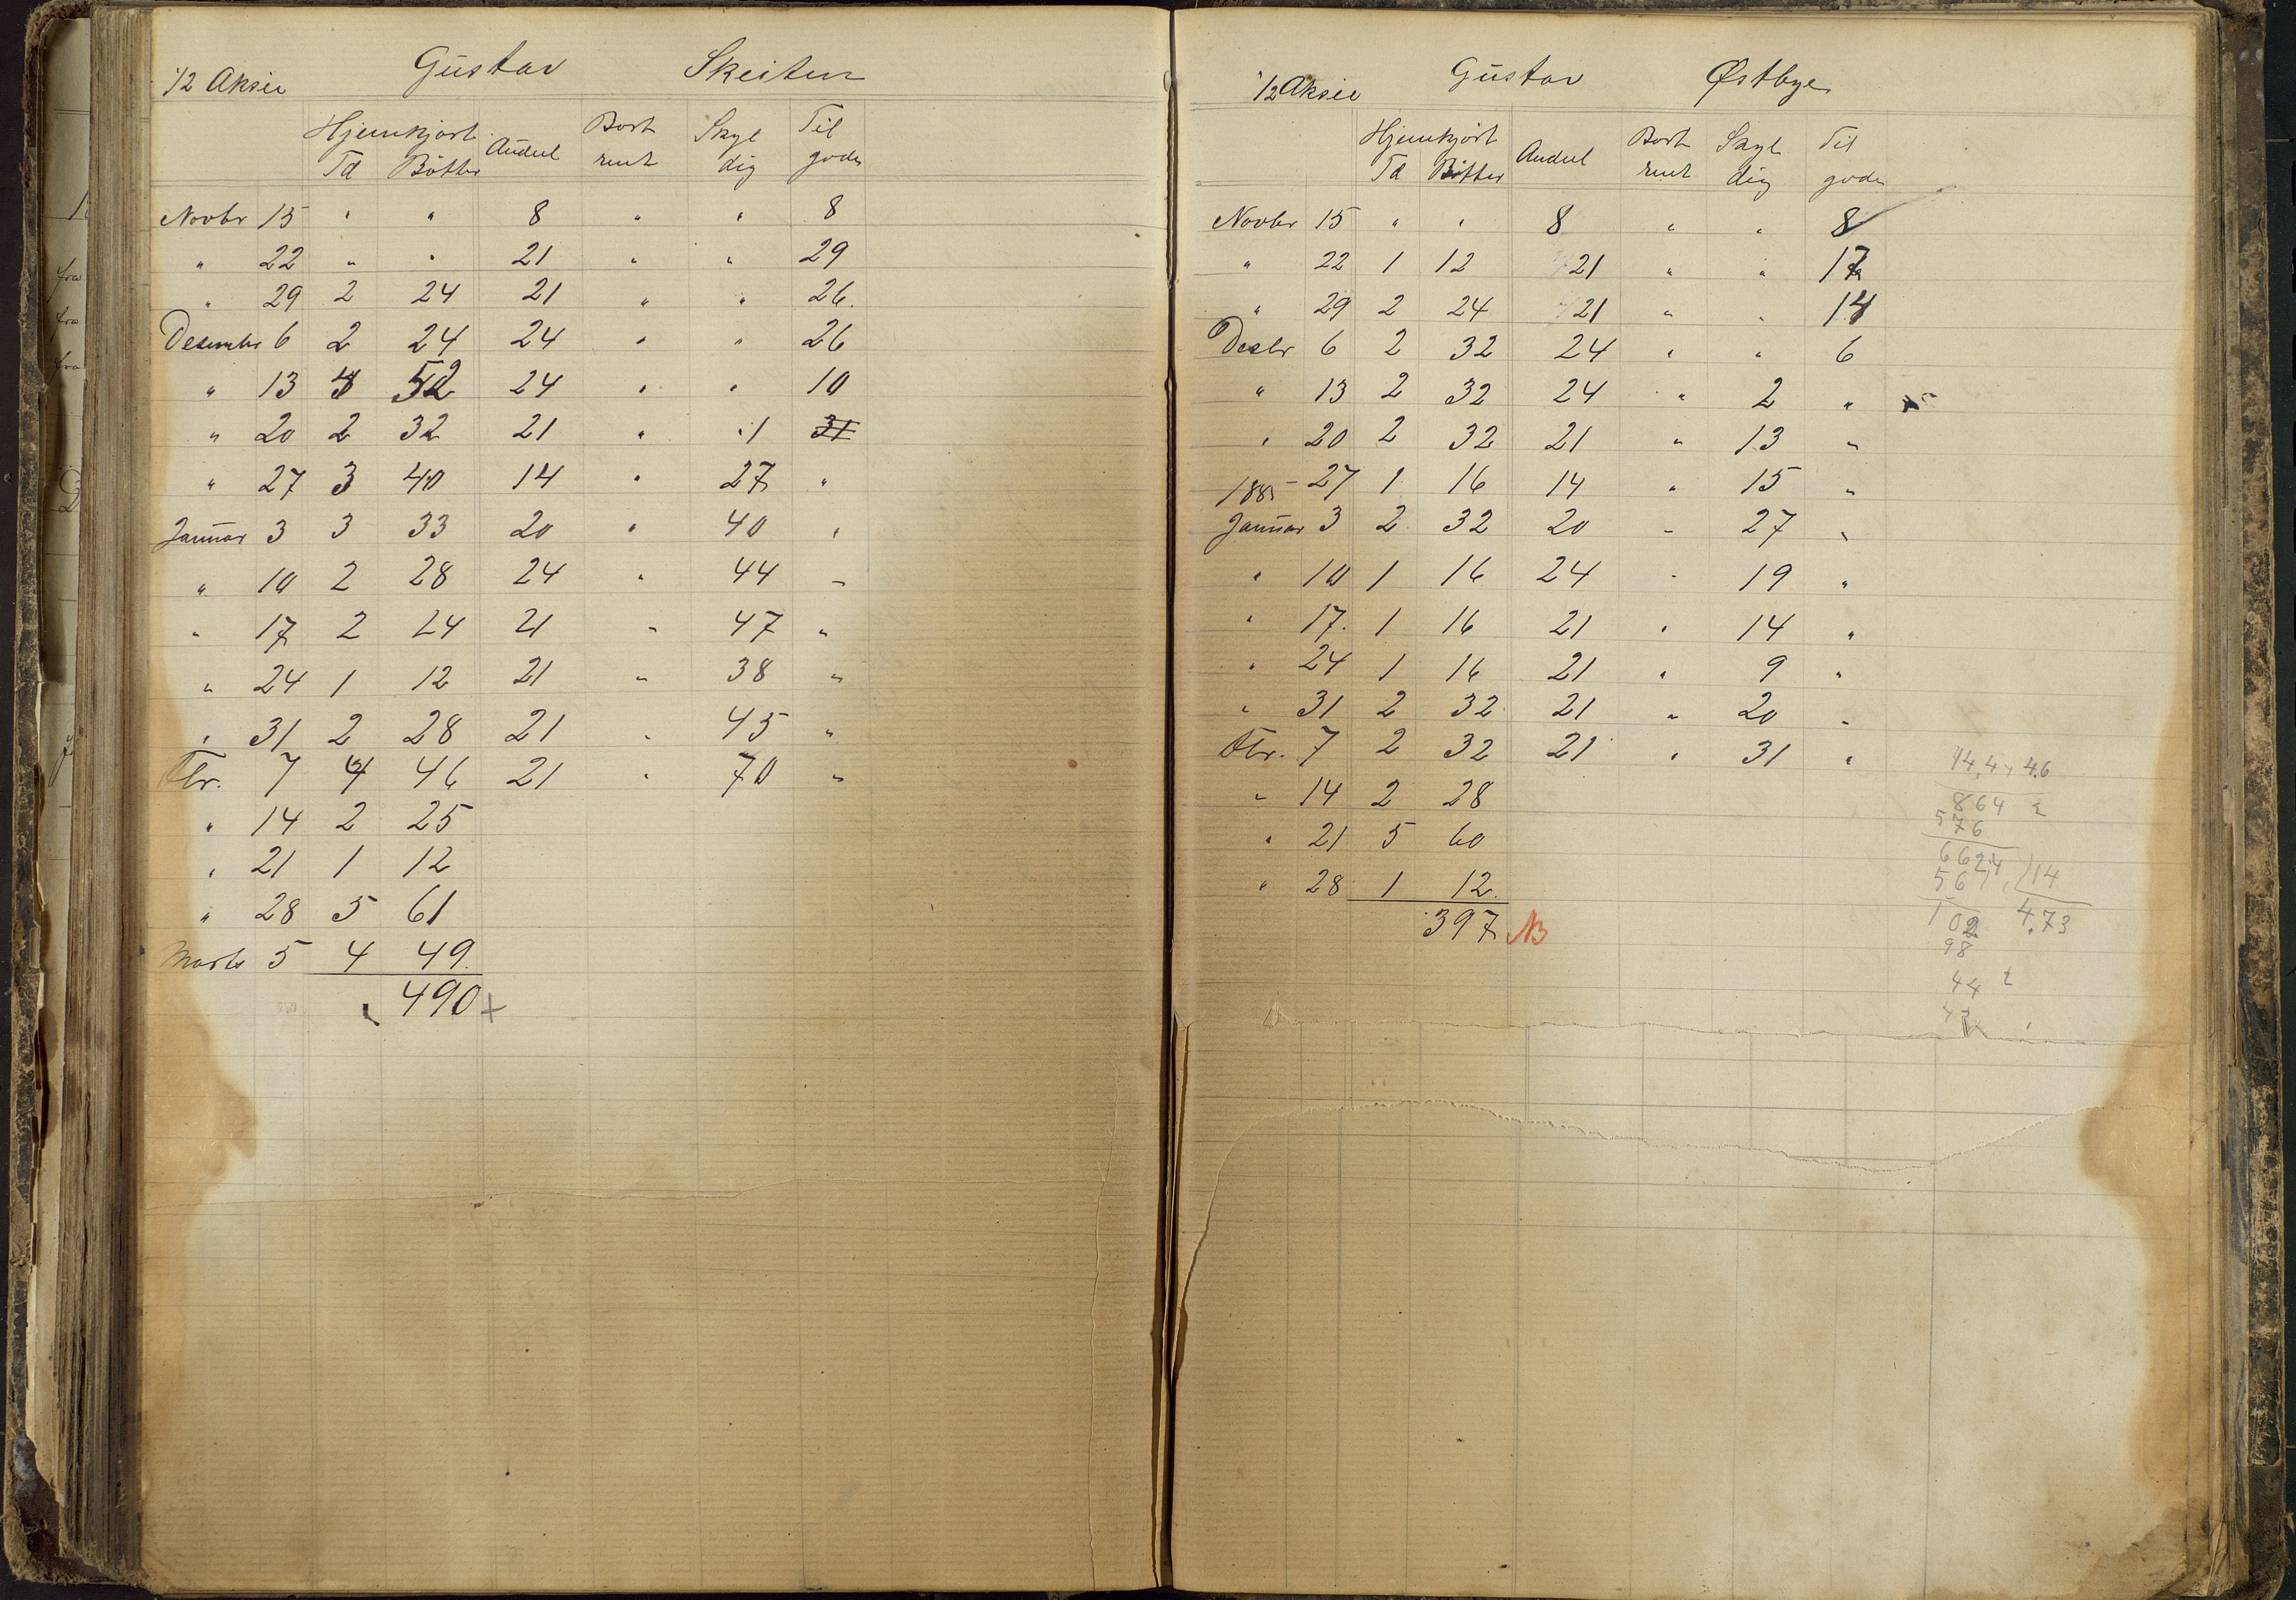 1/2 Aksie Gustav Skeitun
Hjemkjørt Andel Bort Skyl Til
Td Bötter rent dig gode
Novbr 15 " " 8 " " 8
" 22 " " 21 " " 29
" 29 2 24 21 " " 26.
Desember 6 2 24 24 " " 26
" 13 4 24 " " 10
" 20 2 32 21 " 1 31
" 27 3 40 14 " 27 "
Januar 3 3 33 20 " 40 "
" 10 2 28 24 " 44 "
" 17 2 24 21 " 47 "
" 24 1 12 21 " 38 "
" 31 2 28 21 " 45 "
Fbr. 7 4 46 21 " 70 "
" 14 2 25
" 21 1 12
" 28 5 61
Marts 5 4 49.
490 +
1/2 Aksie Gustav Østbye
Hjemkjørt Andel Bort Skyl Til
Td Bötter rent dig gode
Novbr 15 " " 8 " " 8
" 22 1 12 21 " " 17
" 29 2 24 21 " " 14
Desbr 6 2 32 24 " " 6
" 13 2 32 24 " 2 "
" 20 2 32 21 " 13 "
" 27 1 16 14 " 15 "
1885
Januar 3 2 32 20 " 27 "
" 10 1 16 24 " 19 "
" 17. 1 16 21 " 14 "
" 24 1 16 21 " 9 "
" 31 2 32 21 " 20 "
Fbr. 7 2 32 21 " 31 "
" 14 2 28
" 21 5 60
" 28 1 12.
397 NB
14,4 × 4.6
864
576
6624 14
56 4.73
102
98
44
42